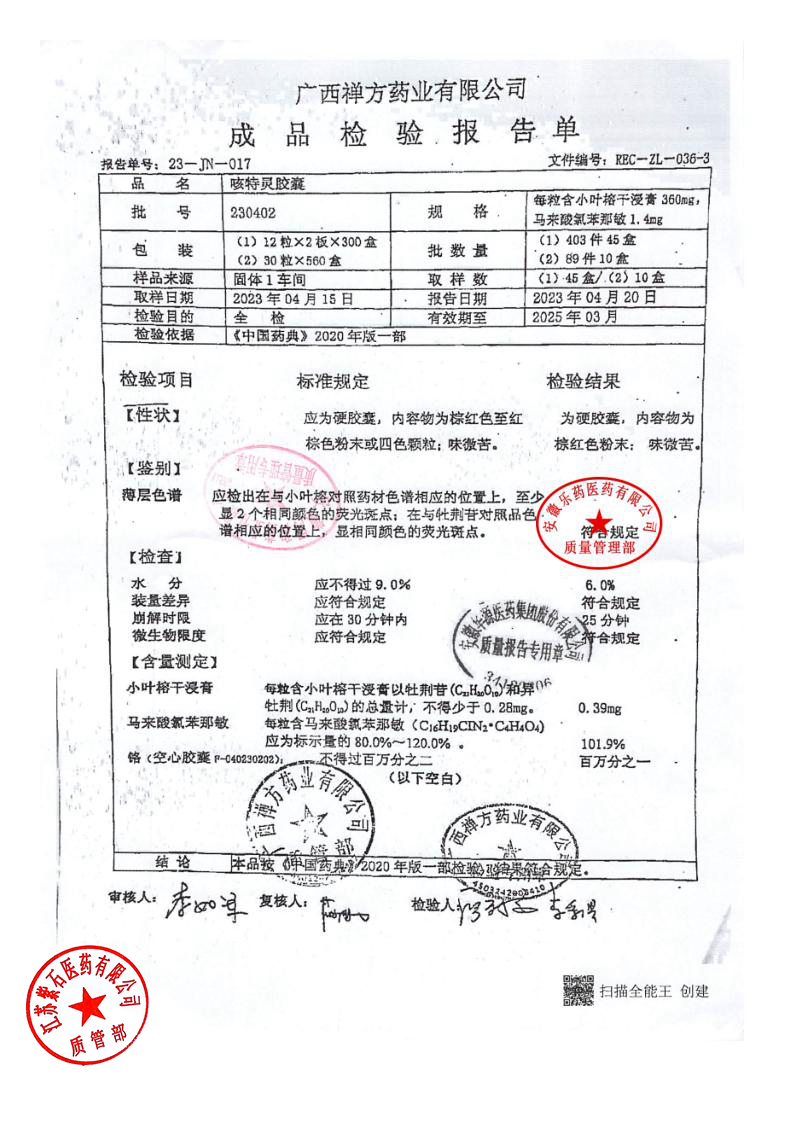 广西禅方药业有限公司
成品检验报告单
报告单号：23—JN—017 文件编号：REC—ZL—036-3
品 名 咳特灵胶囊
批 号 230402 规 格 每粒含小叶榕干浸膏 360mg，
马来酸氯苯那敏 1.4mg
包 装 （1）12 粒×2 板×300 盒 批 数 量 （1）403 件 45 盒
（2）30 粒×560 盒 （2）89 件 10 盒
样品来源 固体 1 车间 取 样 数 （1）45 盒/（2）10 盒
取样日期 2023 年 04 月 15 日 报告日期 2023 年 04 月 20 日
检验目的 全 检 有效期至 2025 年 03 月
检验依据 《中国药典》2020 年版一部
检验项目 标准规定 检验结果
【性状】 应为硬胶囊，内容物为棕红色至红 为硬胶囊，内容物为
棕色粉末或四色颗粒；味微苦。 棕红色粉末； 味微苦。
【鉴别】
薄层色谱 应检出在与小叶榕对照药材色谱相应的位置上，至少
显 2 个相同颜色的荧光斑点；在与牡荆苷对照品色
谱相应的位置上，显相同颜色的荧光斑点。 符合规定
【检查】
水 分 应不得过 9.0% 6.0%
装量差异 应符合规定 符合规定
崩解时限 应在 30 分钟内 25 分钟
微生物限度 应符合规定 符合规定
【含量测定】
小叶榕干浸膏 每粒含小叶榕干浸膏以牡荆苷(C₂₁H₂₀O₁₀)和异
牡荆(C₂₁H₂₀O₁₀)的总量计，不得少于 0.28mg。 0.39mg
马来酸氯苯那敏 每粒含马来酸氯苯那敏（C₁₆H₁₉ClN₂•C₄H₄O₄）
应为标示量的 80.0%～120.0% 。 101.9%
铬（空心胶囊 F-C40230202)： 不得过百万分之二 百万分之一
（以下空白）
结 论 本品按《中国药典》2020 年版一部检验，结果符合规定。
审核人： 复核人： 检验人：
安徽乐药医药有限公司
质量管理部
安徽华源医药集团股份有限公司
质量报告专用章
广西禅方药业有限公司
质管部
广西禅方药业有限公司
江苏紫石医药有限公司
质管部
质量管理专用章
扫描全能王 创建